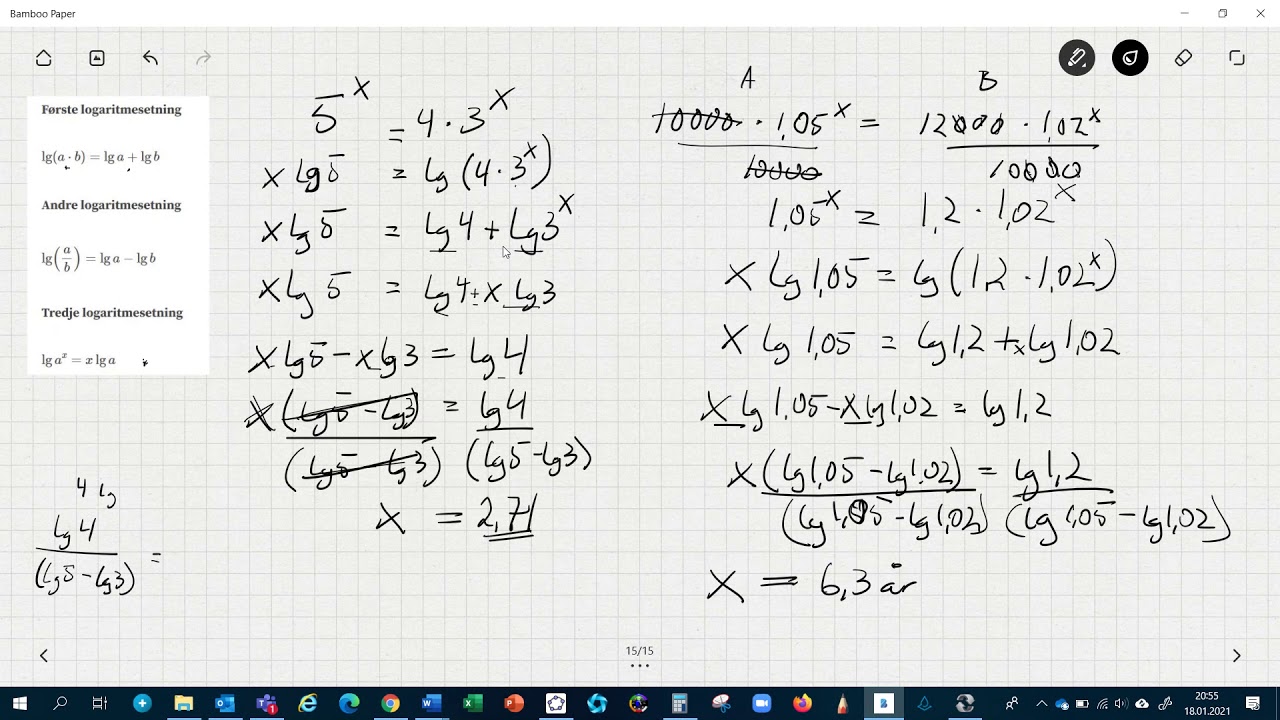 Bamboo Paper
Første logaritmesetning
lg(a · b) = lg a + lg b
Andre logaritmesetning
lg(a/b) = lg a − lg b
Tredje logaritmesetning
lg aˣ = x lg a
5ˣ = 4 · 3ˣ
x lg 5 = lg (4 · 3ˣ)
x lg 5 = lg 4 + lg 3ˣ
x lg 5 = lg 4 + x lg 3
x lg 5 − x lg 3 = lg 4
x (lg 5 − lg 3) = lg 4
(lg 5 − lg 3) (lg 5 − lg 3)
x = 2,71
4 lg
lg 4
(lg 5 − lg 3) =
A B
10000 · 1,05ˣ = 12000 · 1,02ˣ
10000 10000
1,05ˣ = 1,2 · 1,02ˣ
x lg 1,05 = lg (1,2 · 1,02ˣ)
x lg 1,05 = lg 1,2 + x lg 1,02
x lg 1,05 − x lg 1,02 = lg 1,2
x (lg 1,05 − lg 1,02) = lg 1,2
(lg 1,05 − lg 1,02) (lg 1,05 − lg 1,02)
x = 6,3 år
15/15
20:55
18.01.2021